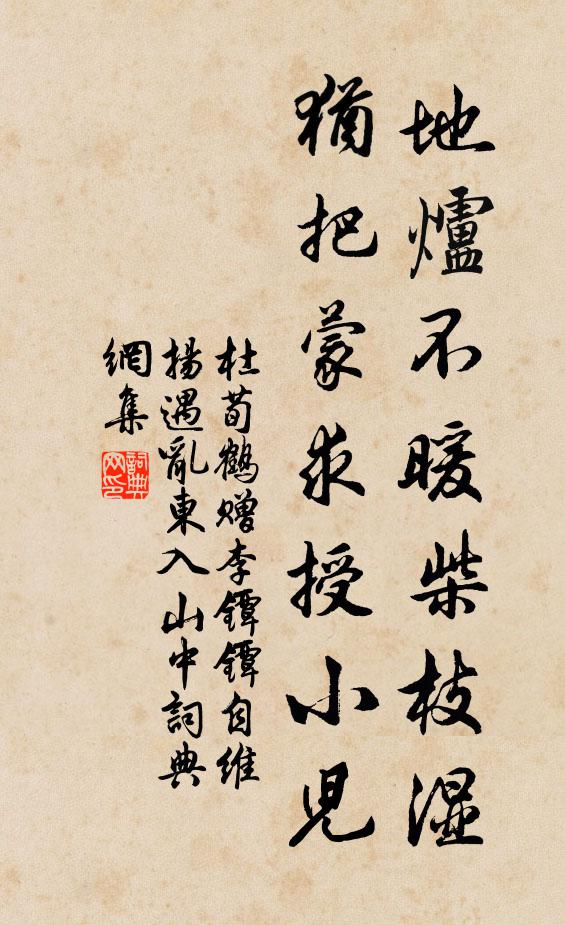 地爐不暖柴枝湿
猶把蒙求授小児
杜荀鶴赠李鐔鐔自維
揚遇亂東入山中詞典
網集
詞典
网印